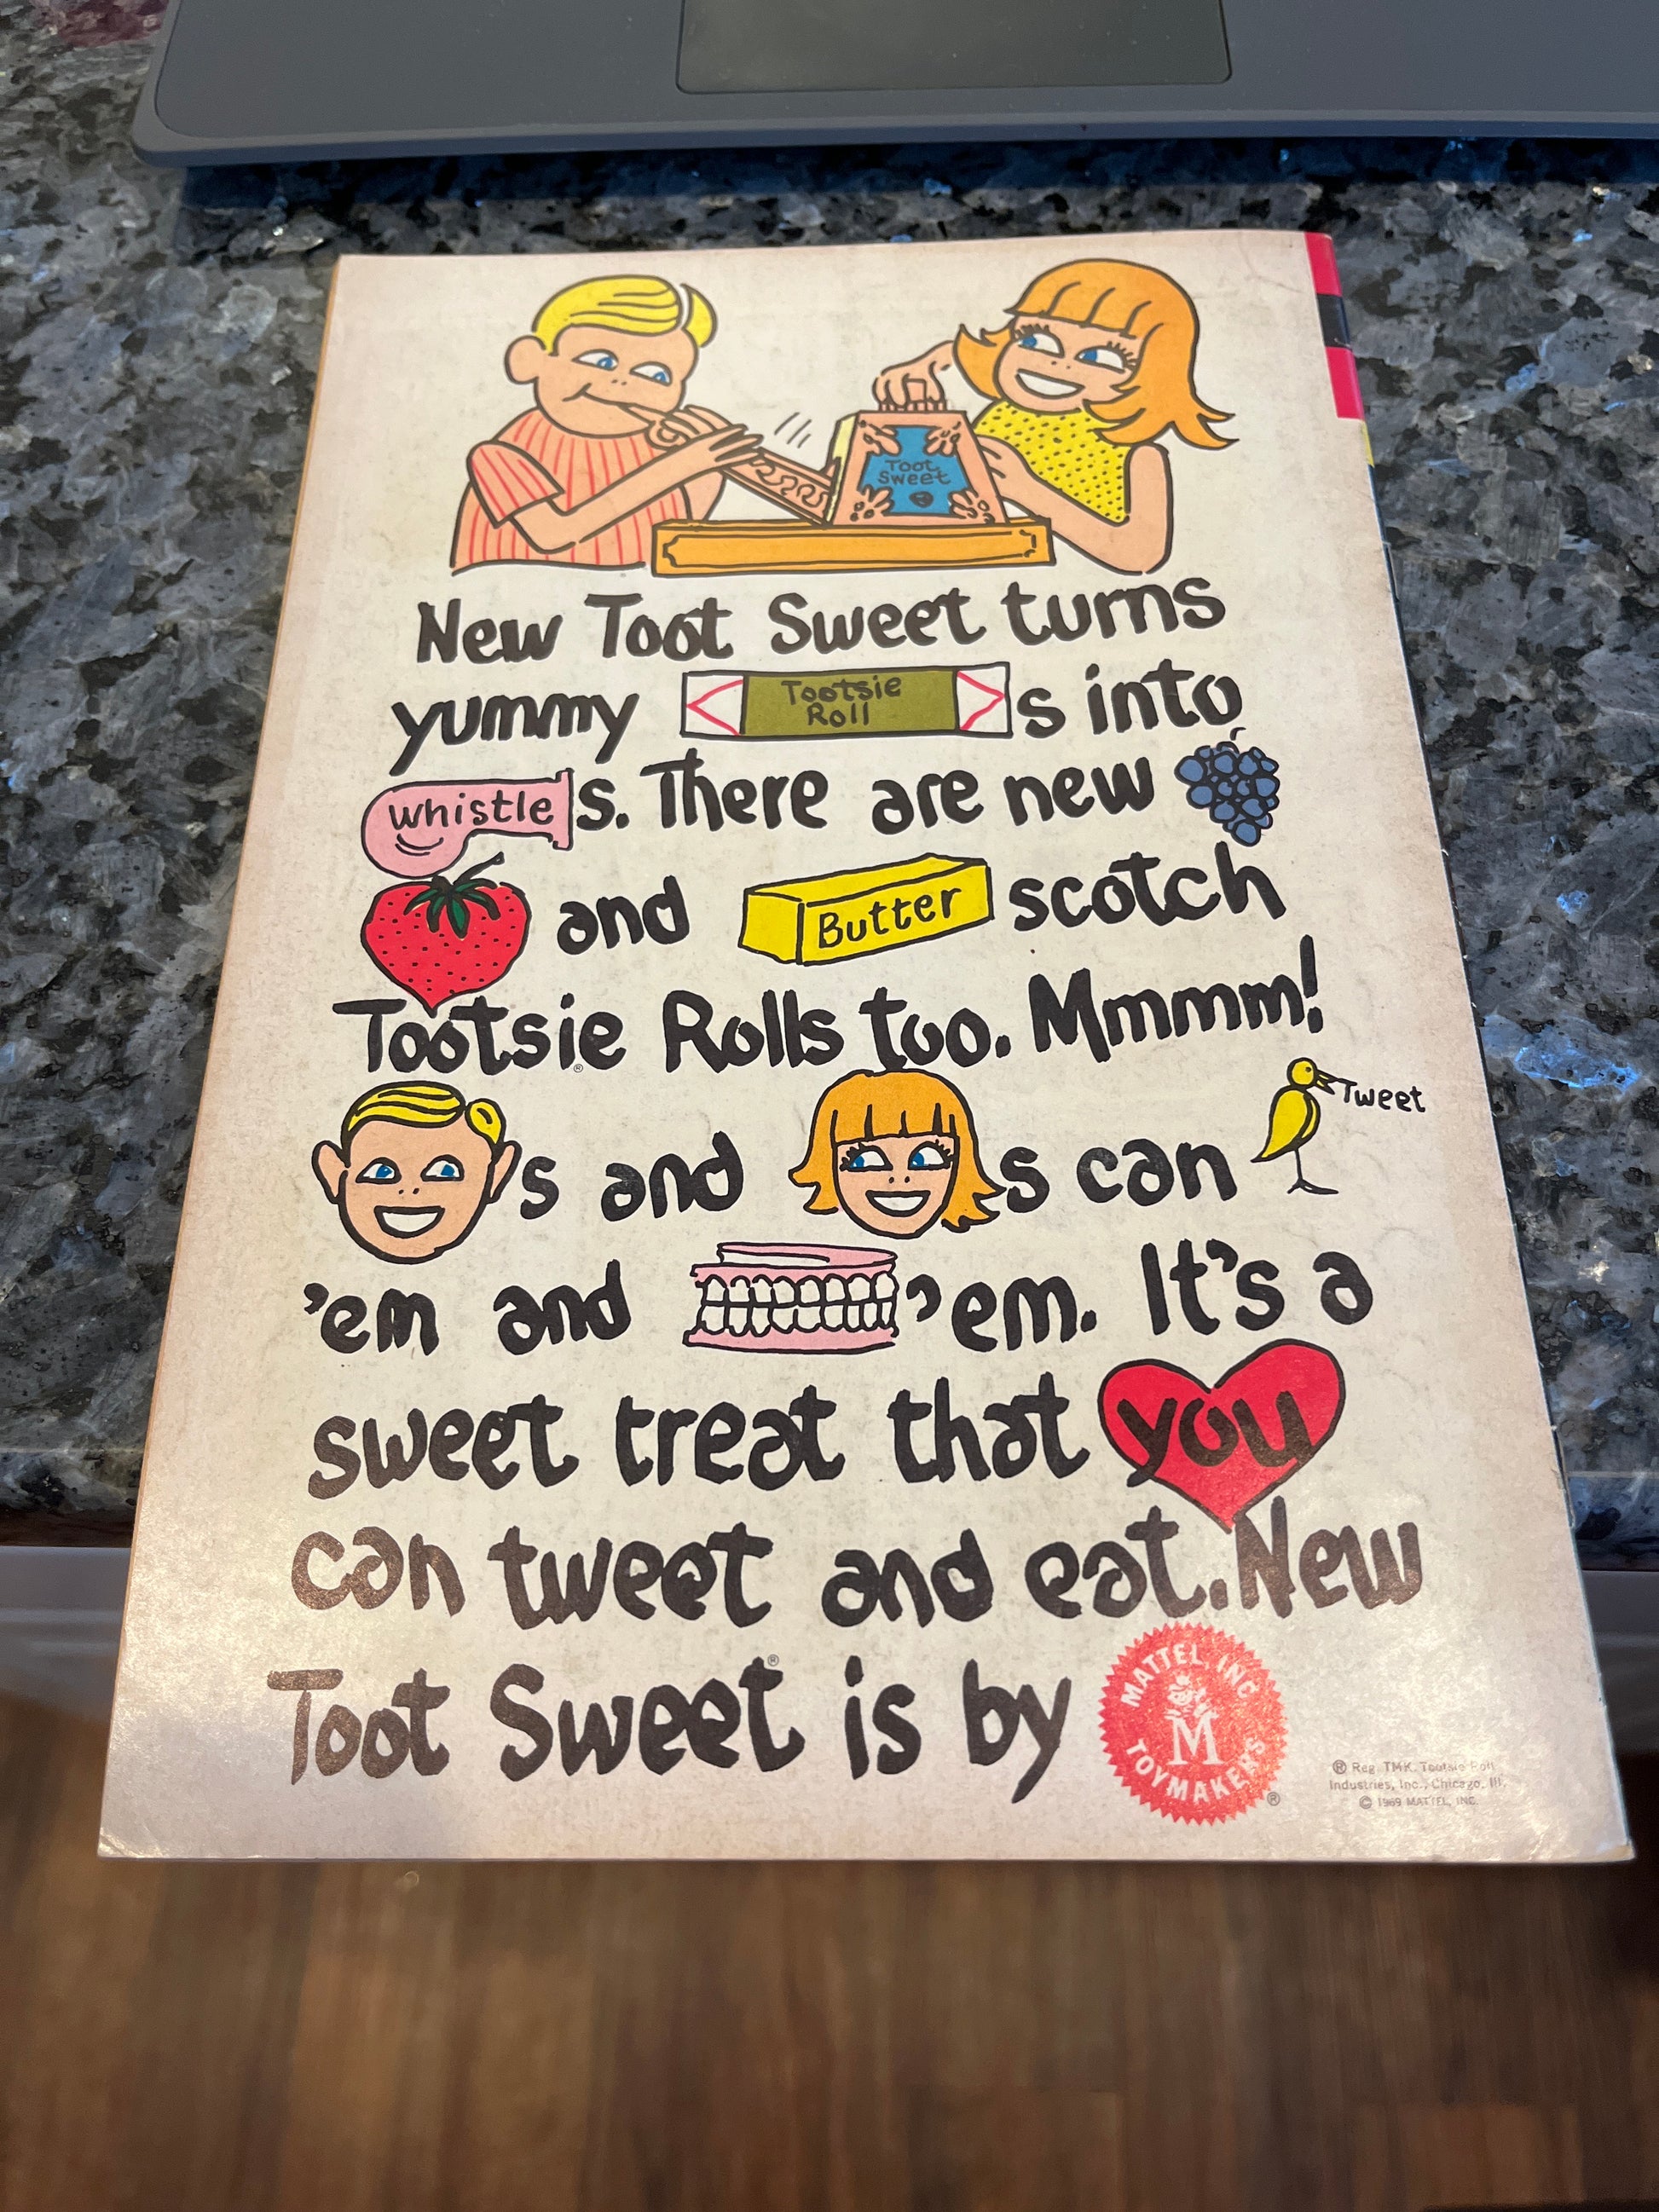 Toot
Sweet
New Toot Sweet turns
yummy Tootsie Roll s into
whistle s. There are new
and Butter scotch
Tootsie® Rolls too. Mmmm!
s and s can Tweet
'em and 'em. It's a
sweet treat that you
can tweet and eat. New
Toot Sweet® is by MATTEL INC. M TOYMAKERS ®
® Reg. TMK. Tootsie Roll
Industries, Inc., Chicago, Ill.
© 1969 MATTEL, INC.